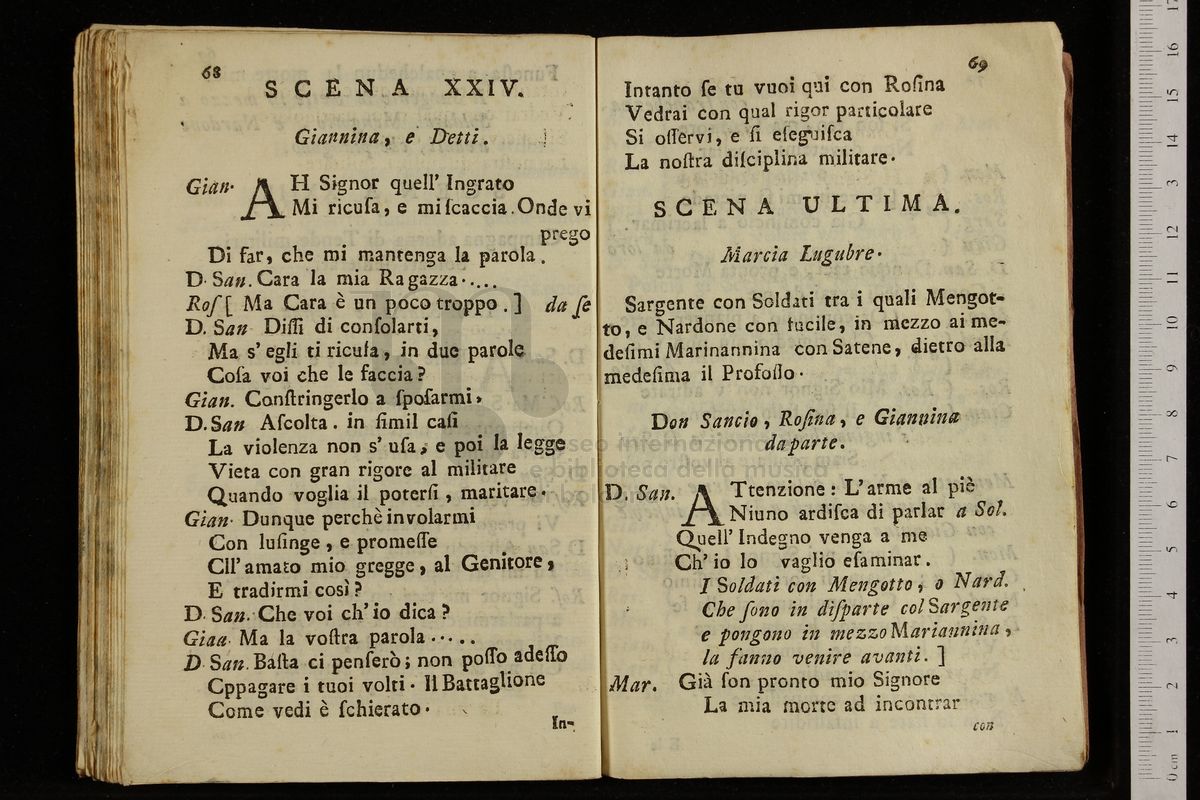 68
SCENA XXIV.
Giannina, e Detti.
Gian. AH Signor quell' Ingrato
Mi ricusa, e mi scaccia. Onde vi
prego
Di far, che mi mantenga la parola.
D. San. Cara la mia Ragazza.....
Ros [ Ma Cara è un poco troppo. ] da se
D. San Dissi di consolarti,
Ma s' egli ti ricusa, in due parole
Cosa voi che le faccia?
Gian. Constringerlo a sposarmi,
D. San Ascolta. in simil casi
La violenza non s' usa, e poi la legge
Vieta con gran rigore al militare
Quando voglia il potersi, maritare.
Gian. Dunque perchè involarmi
Con lusinge, e promesse
Cll' amato mio gregge, al Genitore,
E tradirmi così?
D. San. Che voi ch' io dica?
Giaa. Ma la vostra parola.....
D. San. Basta ci penserò; non posso adesso
Cppagare i tuoi volti. Il Battaglione
Come vedi è schierato.
In-
69
Intanto se tu vuoi qui con Rosina
Vedrai con qual rigor particolare
Si osservi, e si eseguisca
La nostra disciplina militare.
SCENA ULTIMA.
Marcia Lugubre.
Sargente con Soldati tra i quali Mengot-
to, e Nardone con fucile, in mezzo ai me-
desimi Marinannina con Satene, dietro alla
medesima il Profosso.
Don Sancio, Rosina, e Giannina
da parte.
D. San. ATtenzione: L'arme al piè
Niuno ardisca di parlar a Sol.
Quell' Indegno venga a me
Ch' io lo vaglio esaminar.
I Soldati con Mengotto, o Nard.
Che sono in disparte col Sargente
e pongono in mezzo Mariannina,
la fanno venire avanti. ]
Mar. Già son pronto mio Signore
La mia morte ad incontrar
con